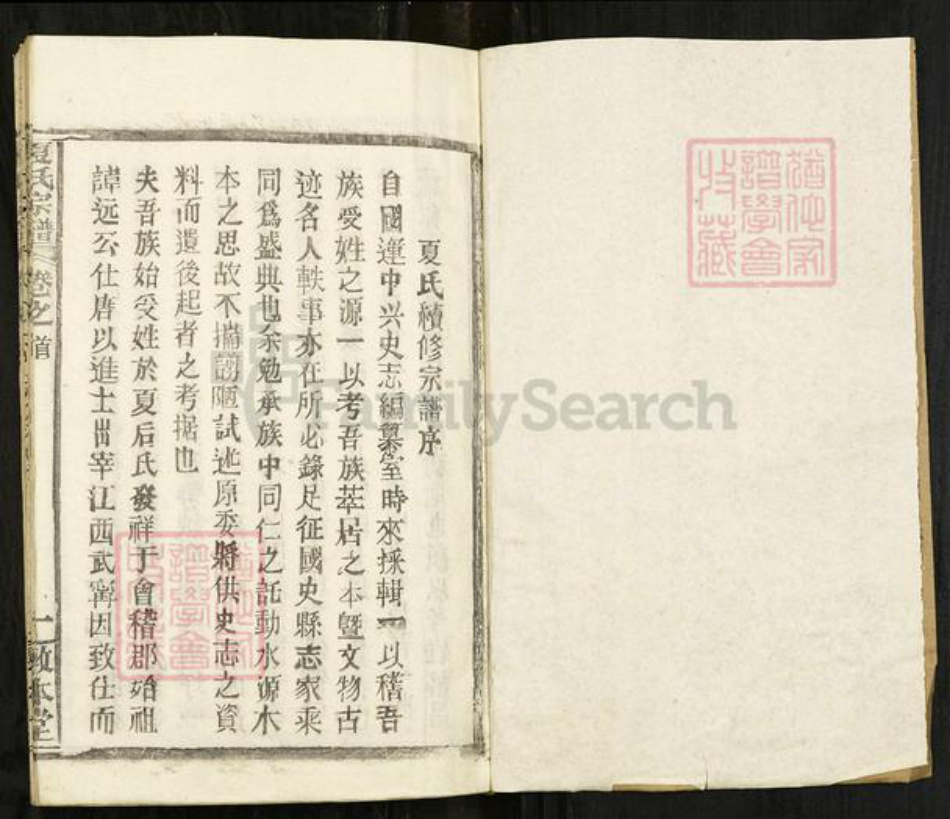 夏氏續修宗譜序
自國運中兴史志編纂室時來採輯一以稽吾
族受姓之源一以考吾族萃居之本暨文物古
迹名人軼事亦在所必錄足征國史縣志家乘
同爲盛典也余勉承族中同仁之託動水源木
本之思故不揣谫陋試述原委將供史志之資
料而遺後起者之考据也
夫吾族始受姓於夏后氏發祥于會稽郡始祖
諱远公仕唐以進士出宰江西武寧因致仕而
夏氏宗譜 卷之首
一 敦本堂
譜學會
收藏
FamilySearch